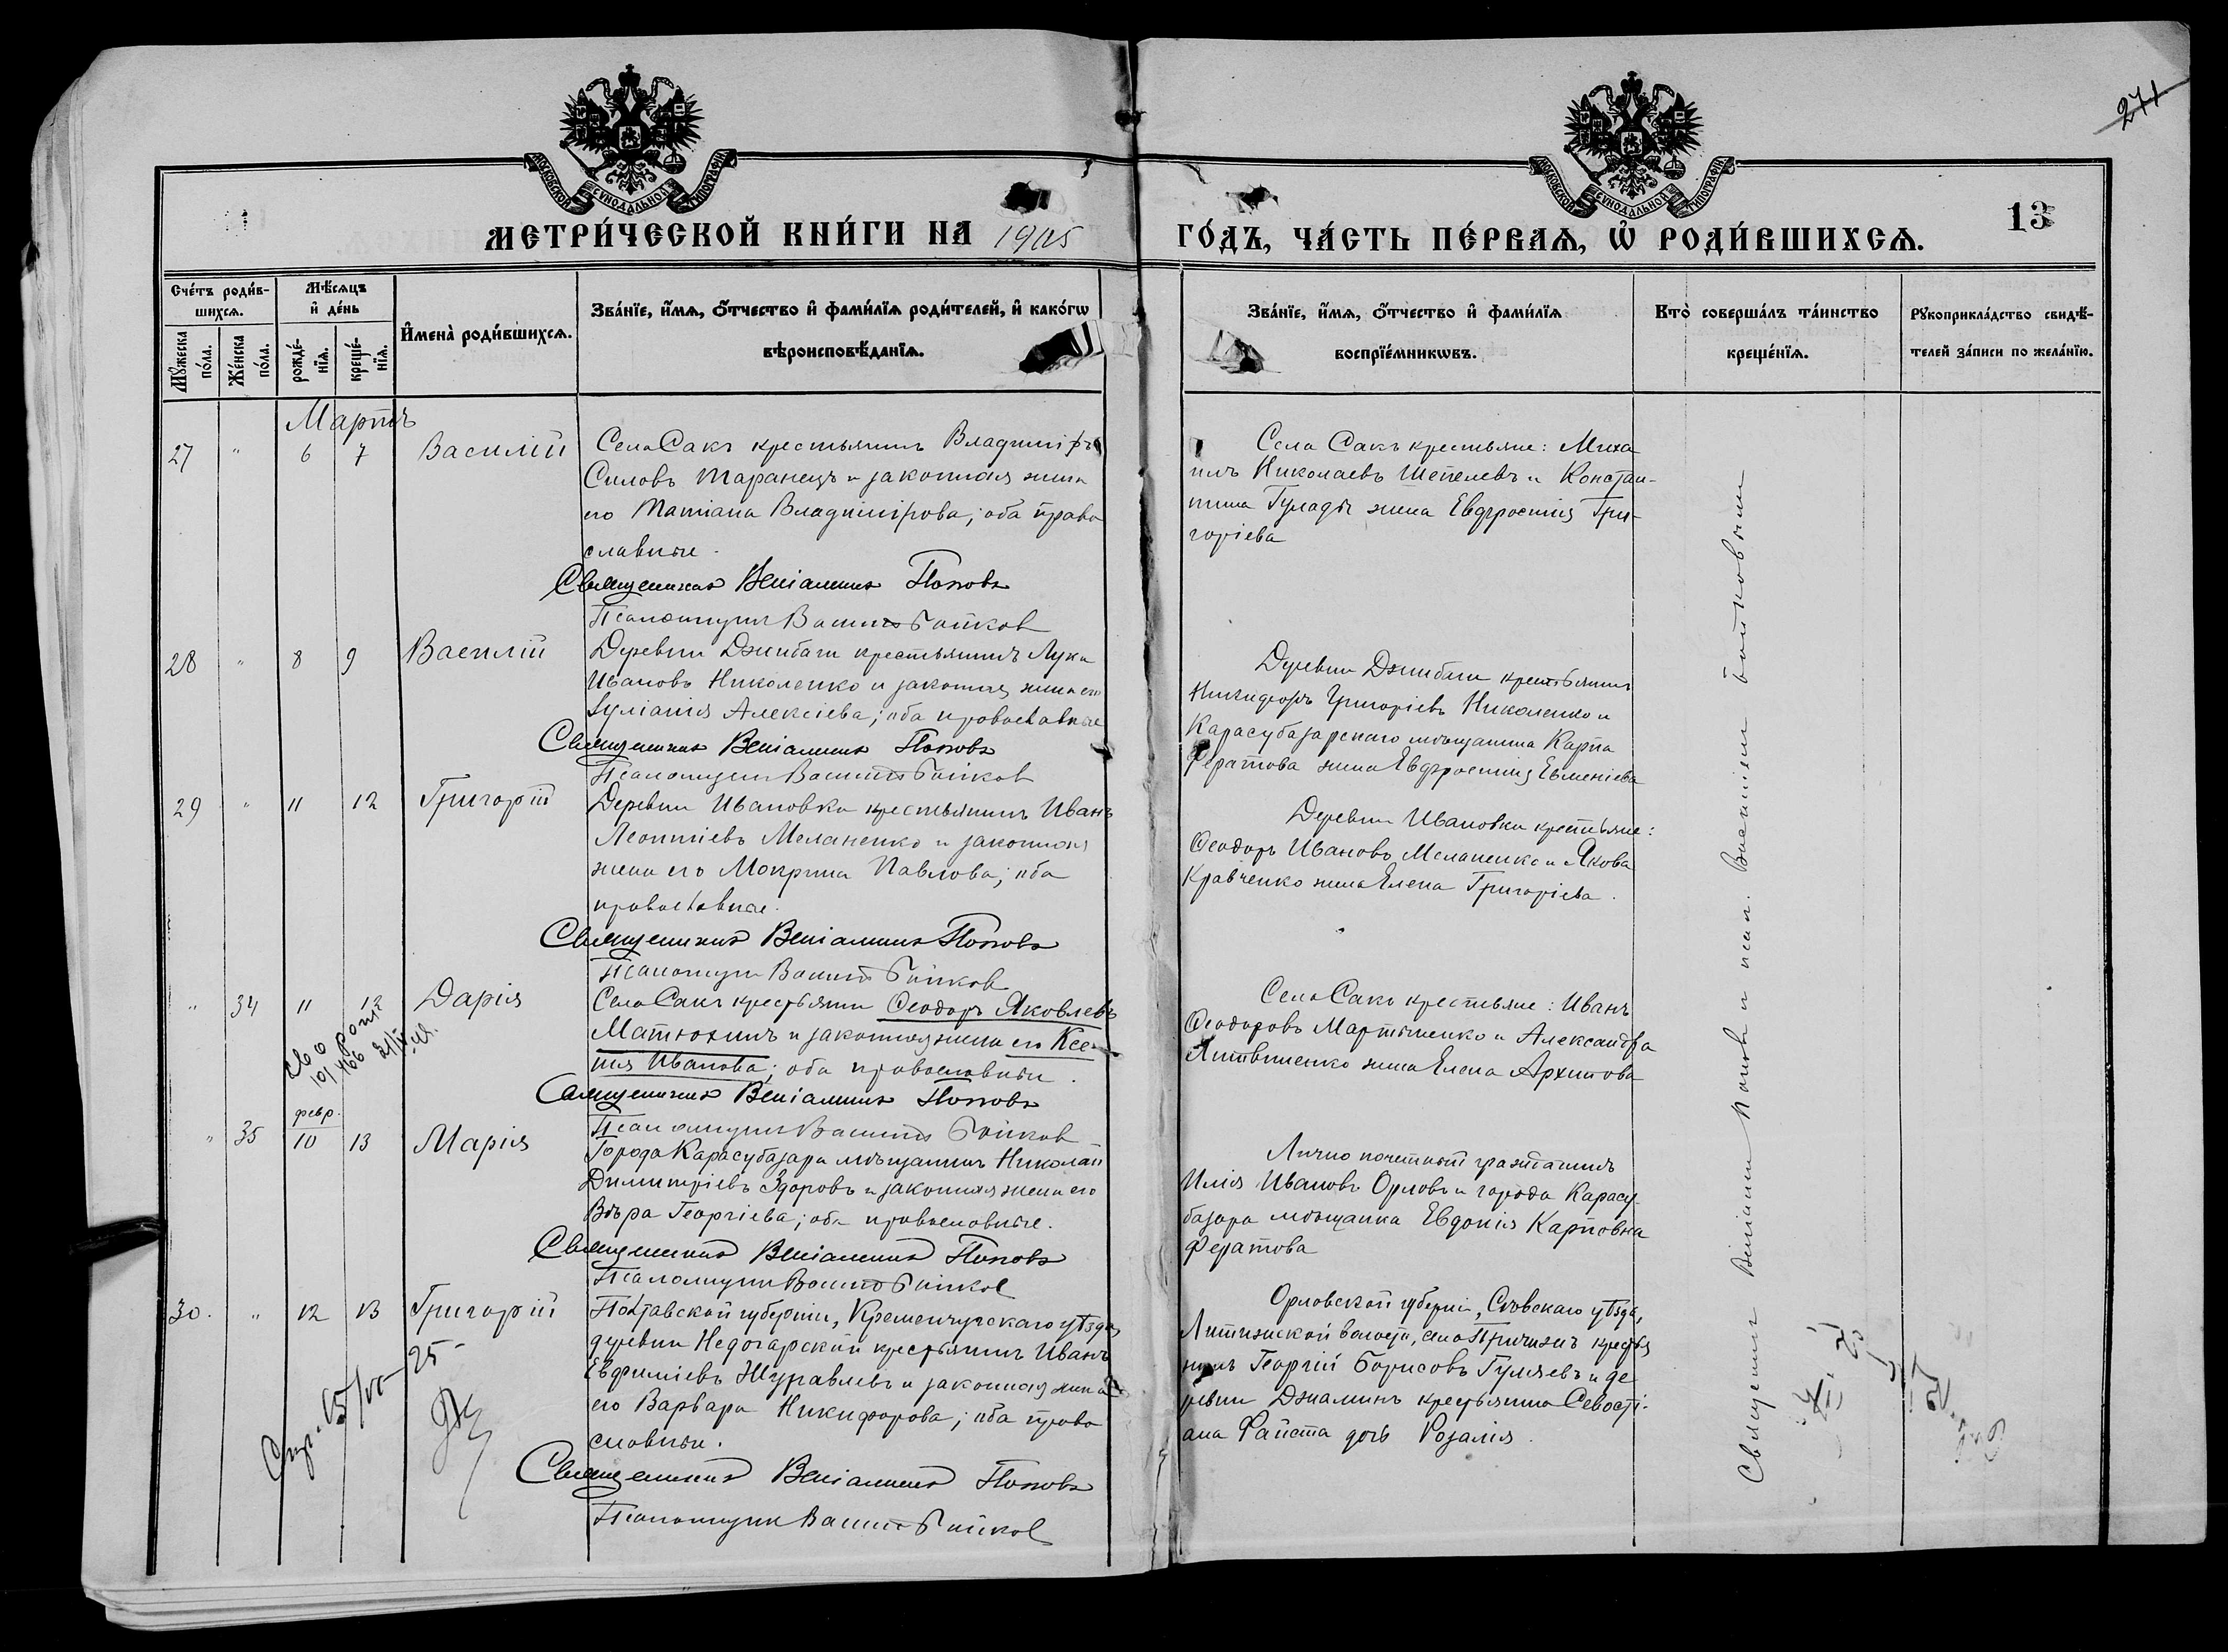 271
МОСКОВСКОЙ СѴНОДАЛЬНОЙ ТИПОГРАФІИ
МОСКОВСКОЙ СѴНОДАЛЬНОЙ ТИПОГРАФІИ
МЕТРИ́ЧЕСКОЙ КНИ́ГИ НА 1905
ГО́ДЪ, ЧА́СТЬ ПЕ́РВАѦ, Ѡ҆ РОДИ́ВШИХСѦ.
13
Сче́тъ роди́в-
шихсѧ.
Мꙋ́жеска по́ла.
Же́нска по́ла.
Мѣ́сѧцъ
и҆ де́нь
рожде́-
нїѧ.
креще́-
нїѧ.
И҆мена̀ роди́вшихсѧ.
Зва́нїе, и҆́мѧ, ѻ҆́тчество и҆ фами́лїѧ роди́телей, и҆ како́гѡ
вѣроисповѣ́данїѧ.
Зва́нїе, и҆́мѧ, ѻ҆́тчество и҆ фами́лїѧ
воспрїе́мникѡвъ.
Кто̀ соверша́лъ та́инство
креще́нїѧ.
Рꙋкоприкла́дство свидѣ́-
телей за́писи по жела́нїю.
Мартъ
27 " 6 7 Василій
Села Сакъ крестьянинъ Владиміръ
Силовъ Таранецъ и законная жена
его Татіана Владимірова; оба право
славные.
Священникъ Веніаминъ Поповъ
Псаломщик Василий Бойков
Села Сакъ крестьяне: Миха
илъ Николаевъ Шепелевъ и Констан-
тина Гулады жена Евфросинія Гри-
горіева
28 " 8 9 Василій
Деревни Джабачи крестьянинъ Лука
Ивановъ Николенко и законная жена его
Іуліанія Алексіева; оба православные
Священникъ Веніаминъ Поповъ
Псаломщик Василий Бойков
крестьянинъ
Никифоръ Григоріевъ Николенко и
Карасубазарскаго мѣщанина Карпа
Фератова жена Евфросинія Евменіева
29 " 11 12 Григорій
Деревни Ивановки крестьянинъ Иванъ
Леонтіевъ Меланенко и законная
жена его Мокрина Павлова; оба
православные.
Священникъ Веніаминъ Поповъ
Псаломщик Василий Бойков
Деревни Ивановки крестьяне:
Ѳеодоръ Ивановъ Меланенко и Якова
Кравченко жена Елена Григоріева.
" 34 11 12 Дарія
Села Сакъ крестьянин Ѳеодоръ Яковлевъ
Матюхинъ и законная жена его Ксе-
нія Иванова; оба православные.
Священникъ Веніаминъ Поповъ
Псаломщик Василий Бойков
Села Сакъ крестьяне: Иванъ
Ѳеодоровъ Мартыненко и Александра
Литвиненко жена Елена Архипова
февр.
" 35 10 13 Марія
Города Карасубазара мѣщанинъ Николай
Димитріевъ Здоровъ и законная жена его
Вѣра Георгіева; оба православные.
Священникъ Веніаминъ Поповъ
Псаломщик Василий Бойков
Лично почетный гражданинъ
Илія Ивановъ Орловъ и города Карасу-
базара мѣщанка Евдокія Карповна
Фератова
30. " 12 13 Григорій
Полтавской губерніи, Кременчугскаго уѣзда,
деревни Недогарской крестьянинъ Иванъ
Евфиміевъ Журавлевъ и законная жена
его Варвара Никифорова; оба право
славные.
Священникъ Веніаминъ Поповъ
Псаломщик Василий Бойков
Орловской губерніи, Сѣвскаго уѣзда,
волости, крестья
нинъ Георгій Борисовъ Гуляевъ и де
ревни Джаминъ крестьянина Севасті-
ана Файста дочь Розалія.
Священник Веніамин Попов и псал. Василий Бойковым